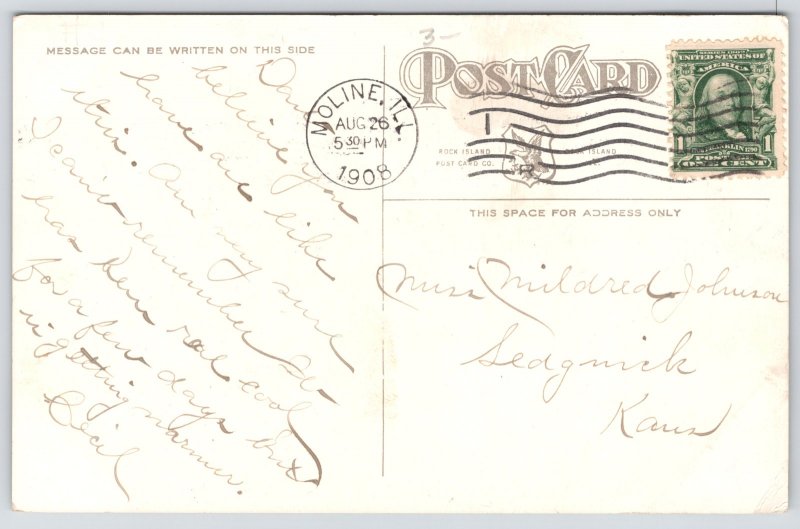 MESSAGE CAN BE WRITTEN ON THIS SIDE
3-
POST CARD
ROCK ISLAND
POST CARD CO.
ROCK ISLAND
ILL.
MOLINE, ILL.
AUG 26
5 30 PM
1908
1
SERIES 1902
UNITED STATES OF
AMERICA
FRANKLIN 1790
1 1
POSTAGE
ONE CENT
THIS SPACE FOR ADDRESS ONLY
believe you
have are like
this. Am very sure
I can't remember. It
has been real cool
for a few days but
is getting warmer.
Cecil
Miss Mildred Johnson
Sedgwick
Kans